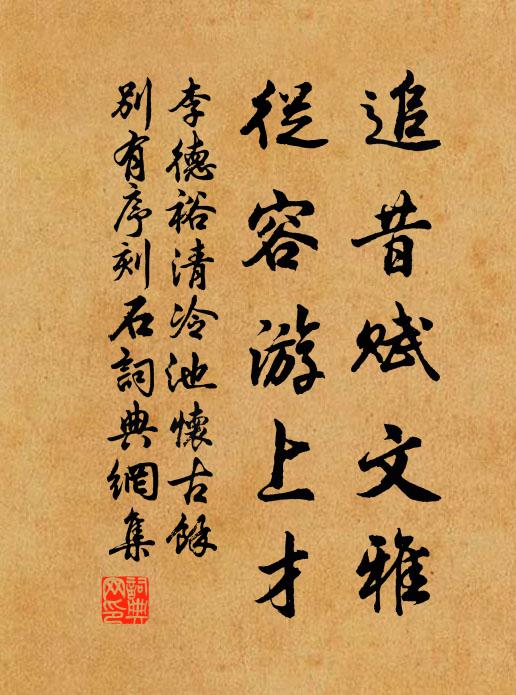 追昔賦文雅
從容游上才
李德裕清冷池懷古餘
別有序刻石詞典網集
詞典
网印